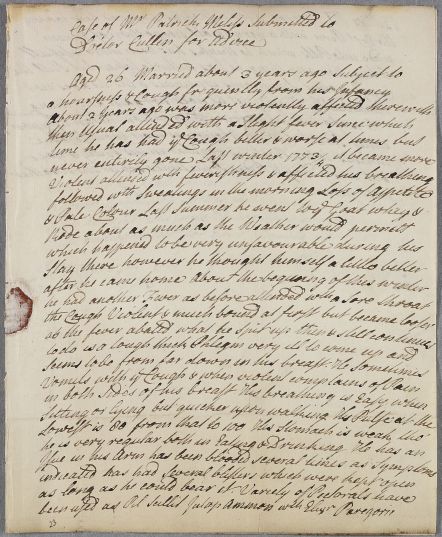 Case of Mr Patrick Wells Submitted to
Doctor Cullen for Advice
Aged 26 Married about 3 years ago Subject to
a hoarsness & Cough frequently from his Infancy
about 2 years ago was more violently affected therewith
than usual attended with a slight fever Since which
time he has had ye Cough better & worse at times but
never entirely gone Last winter 1773 it became more
Violent attended with feverishness & affected his breathing
followed with Sweatings in the morning Loss of Appetite
& Pale Colour Last Summer he went to ye Goat whey &
Rode about as much as the Weather would permitt
which happend to be very unfavourable during his
Stay there however he thought himself a little better
after he came home About the beginning of this winter
he had another Fever as before attended with a Sore throat
the Cough Violent & much bound at first but became looser
as the fever abated what he Spit up then & still continues
to do is a tough thick Phlegm very ill to come up and
Seems to be from far down in his breast He Sometimes
Vomits with ye Cough & when violent complains of Pain
in both Sides of his breast His breathing is Easy when
Sitting or lying but quicker upon walking His Pulse at the
Lowest is 80 from that to 100 His Stomach is weak tho
he is very regular both in Eating & Drinking He has an
Issue in his Arm has been blooded several times as Symptoms
indicated has had several blisters which were kept open
as long as he could bear it Variety of Pectorals have
been used as Pil Scillit Julap Ammon with Elixr Paregoric